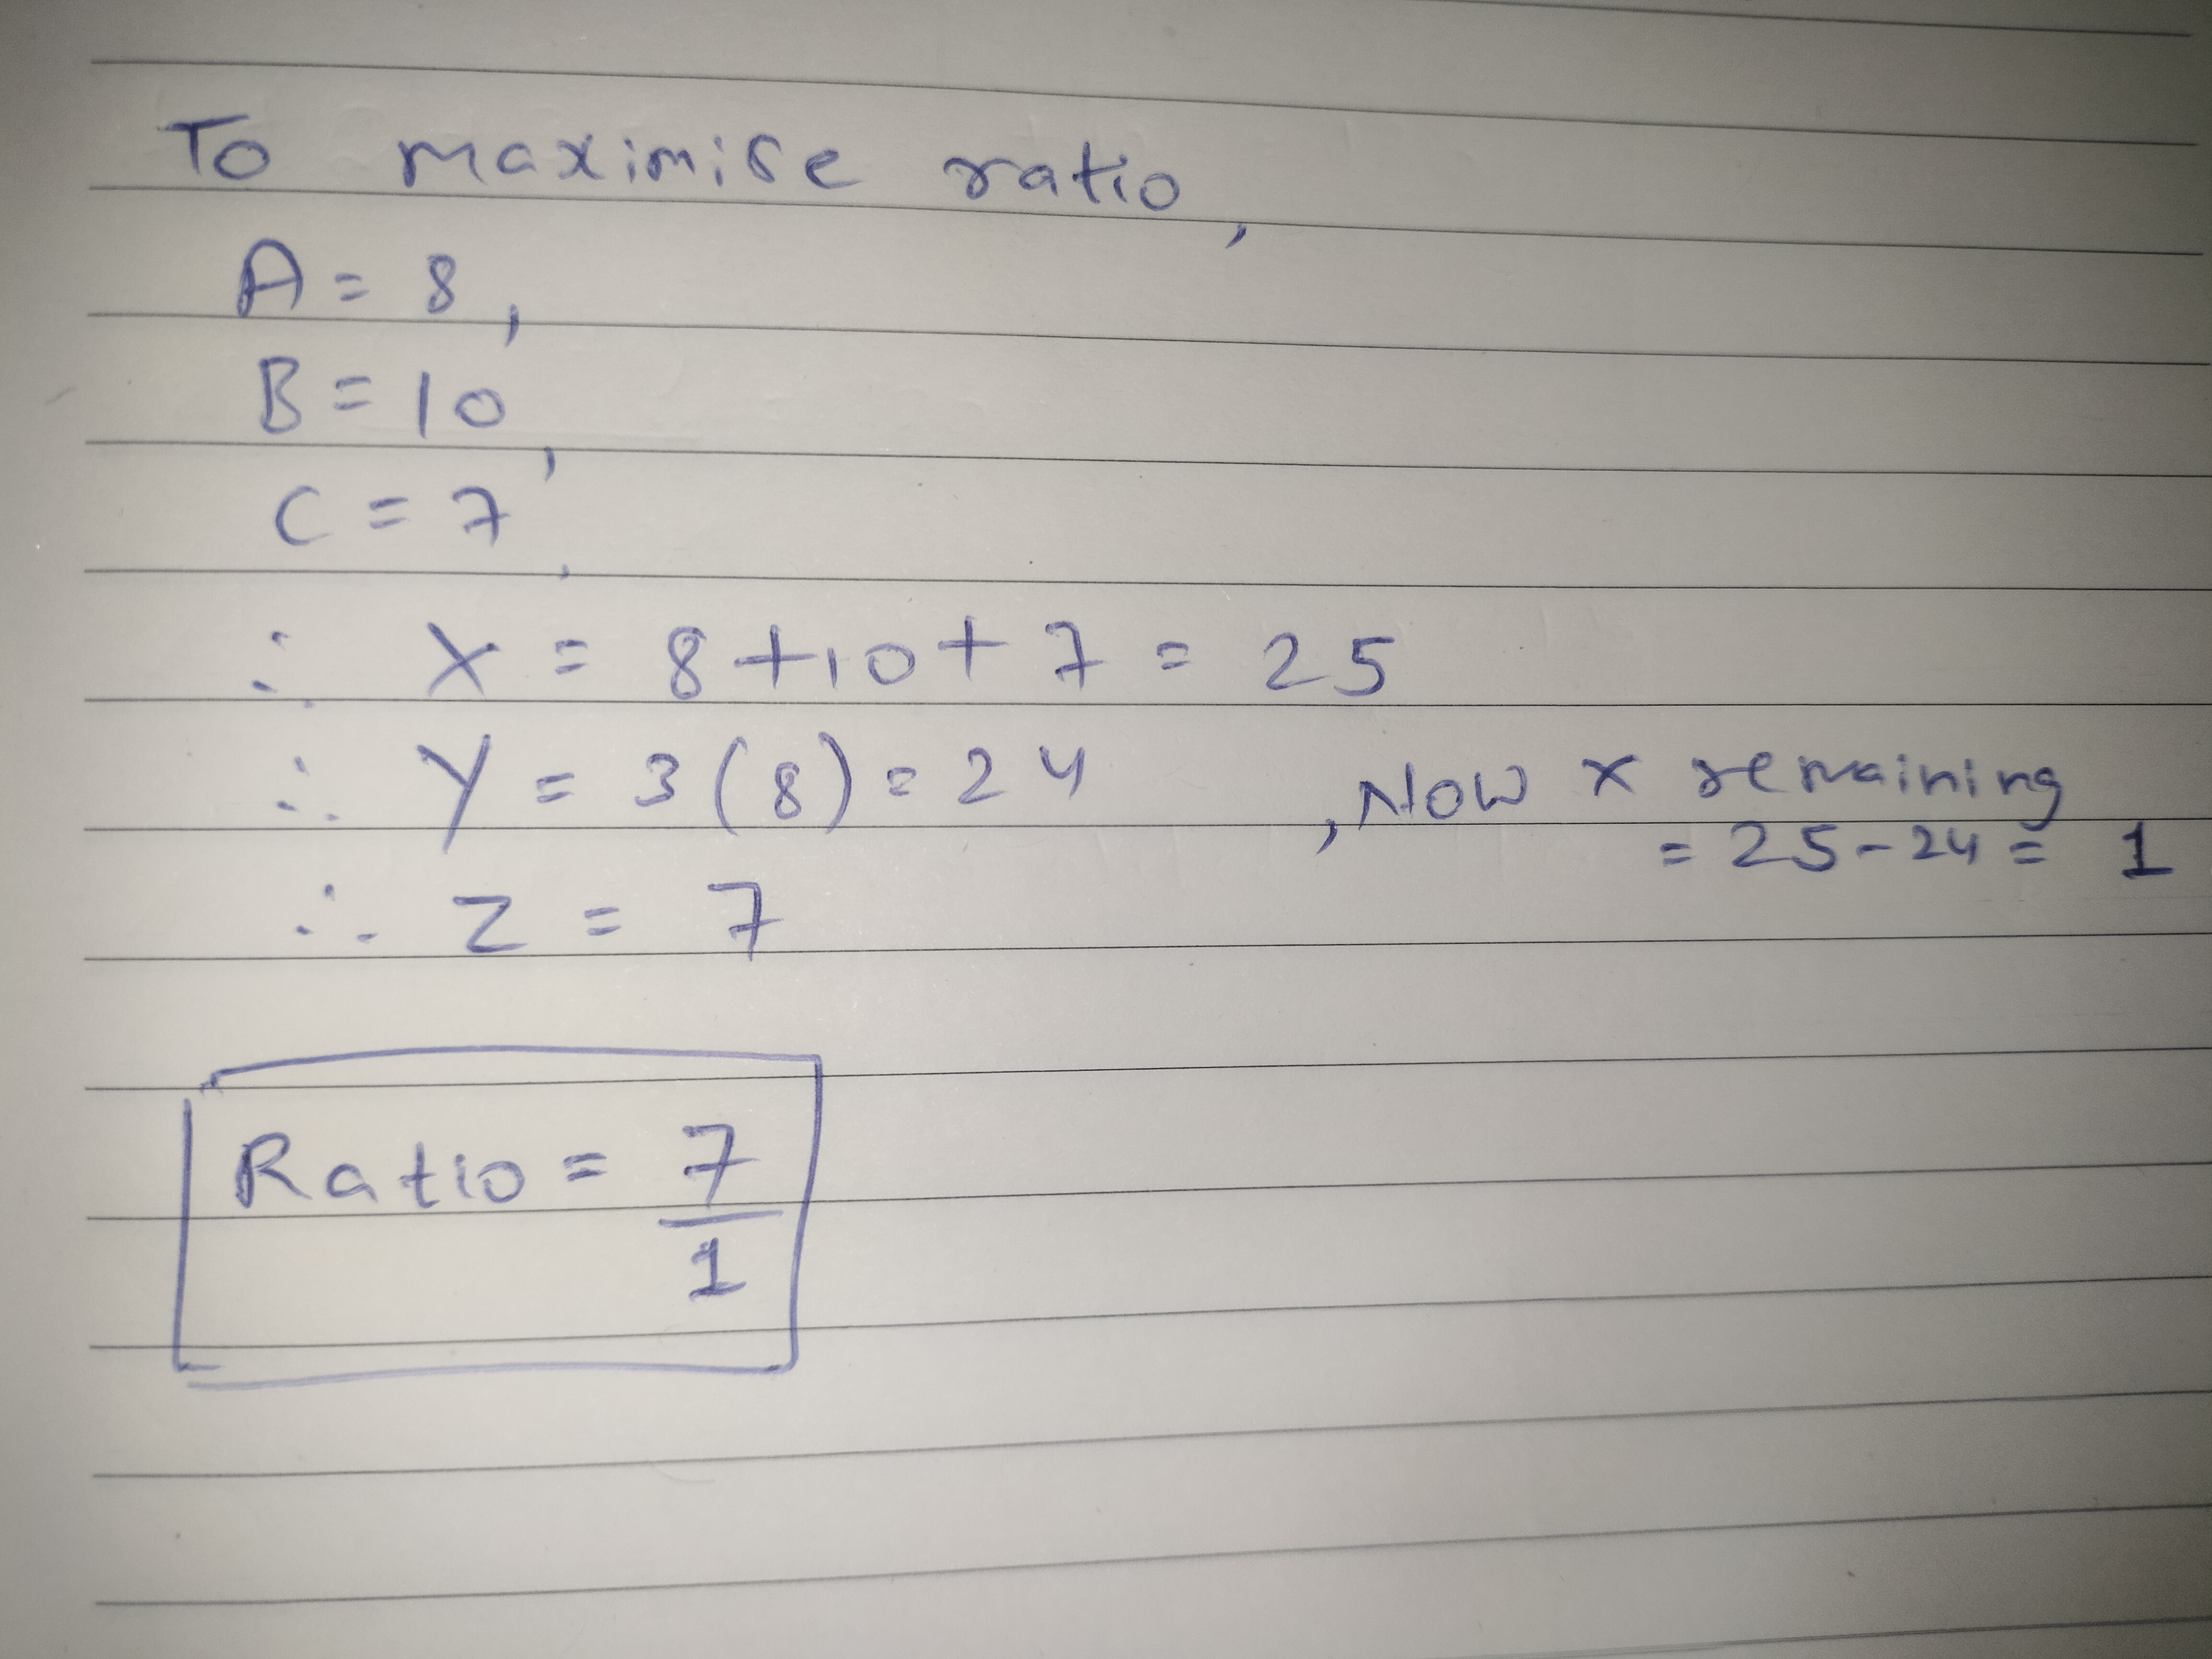 To maximise ratio,
A = 8,
B = 10,
C = 7.
∴ X = 8 + 10 + 7 = 25
∴ Y = 3(8) = 24 , Now x remaining
= 25 - 24 = 1
∴ Z = 7
Ratio = 7/1